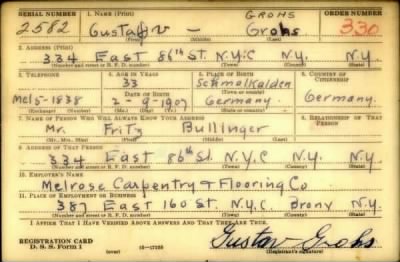 SERIAL NUMBER 1. NAME (Print) GROHS ORDER NUMBER
2582 Gustav - Grohs 330
(First) (Middle) (Last)
2. ADDRESS (Print)
334 East 86th St. N.Y.C N.Y. N.Y.
(Number and street or R. F. D. number) (Town) (County) (State)
3. TELEPHONE 4. AGE IN YEARS 5. PLACE OF BIRTH 6. COUNTRY OF CITIZENSHIP
33 Schmalkalden
DATE OF BIRTH (Town or county)
2-9-1907 Germany Germany
(Exchange) (Number) (Mo.) (Day) (Yr.) (State or country)
7. NAME OF PERSON WHO WILL ALWAYS KNOW YOUR ADDRESS 8. RELATIONSHIP OF THAT PERSON
Mr. Fritz Bullinger
(Mr., Mrs., Miss) (First) (Middle) (Last)
9. ADDRESS OF THAT PERSON
334 East 86th St. N.Y.C N.Y. N.Y.
(Number and street or R. F. D. number) (Town) (County) (State)
10. EMPLOYER'S NAME
Melrose Carpentry & Flooring Co
11. PLACE OF EMPLOYMENT OR BUSINESS
387 East 160 St. N.Y.C. Bronx N.Y.
(Number and street or R. F. D. number) (Town) (County) (State)
I AFFIRM THAT I HAVE VERIFIED ABOVE ANSWERS AND THAT THEY ARE TRUE.
REGISTRATION CARD
D. S. S. Form 1 (over) Gustav Grohs
(Registrant's signature)